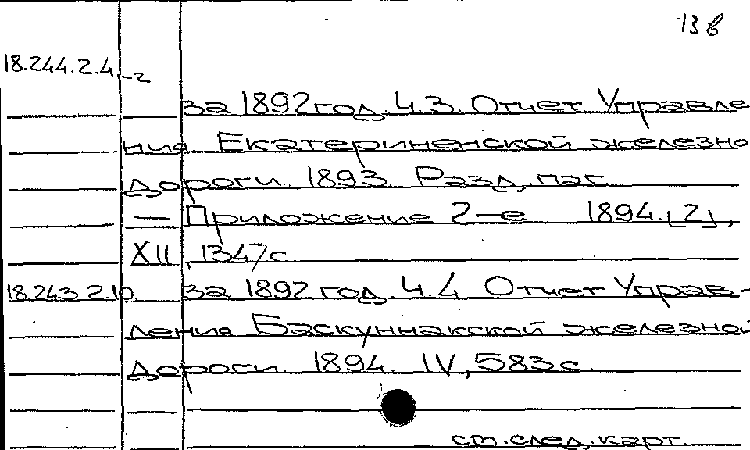 13 в
18.244.2.4-2
за 1892 год. Ч.3. Отчет Управле
ния Екатерининской железно
дороги. 1893. Разд. паг.
— Приложение 2-е 1894. [2],
XII, 1347с.
18.243.2.10 за 1892 год. Ч.4 Отчет Управ-
ления Баскунчакской железной
дороги. 1894. IV, 583с.
см. след. карт.